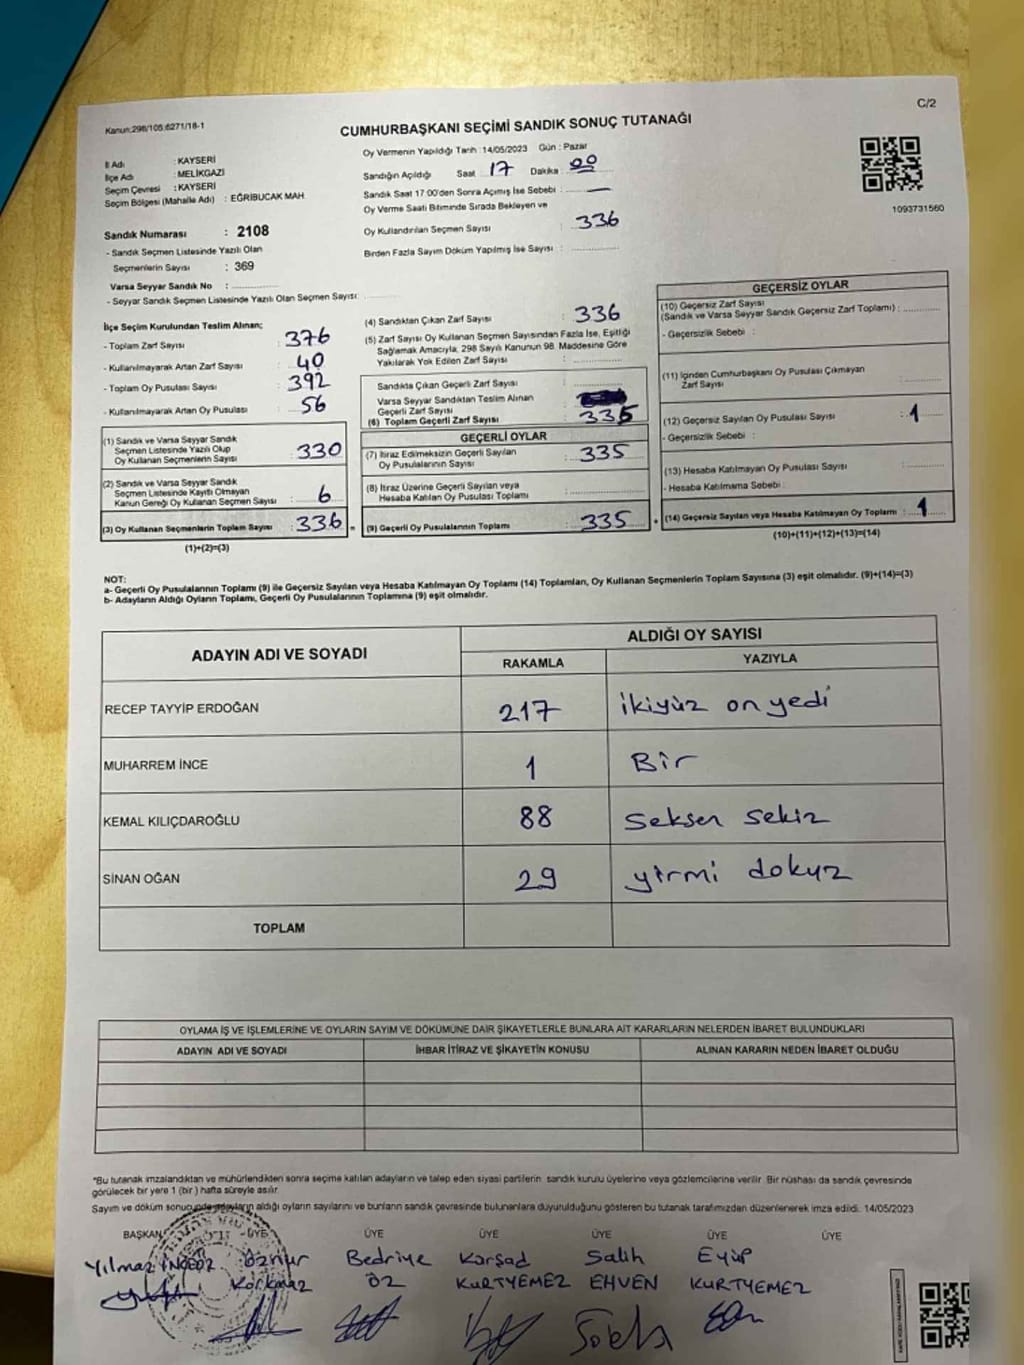 C/2
Kanun:298/105;6271/18-1
CUMHURBAŞKANI SEÇİMİ SANDIK SONUÇ TUTANAĞI
İl Adı : KAYSERİ
İlçe Adı : MELİKGAZİ
Seçim Çevresi : KAYSERİ
Seçim Bölgesi (Mahalle Adı) : EĞRİBUCAK MAH
Oy Vermenin Yapıldığı Tarih : 14/05/2023 Gün : Pazar
Sandığın Açıldığı Saat 17 Dakika : 00
Sandık Saat 17:00'den Sonra Açımış İse Sebebi : —
Oy Verme Saati Bitiminde Sırada Bekleyen ve
Oy Kullandırılan Seçmen Sayısı : 336
Birden Fazla Sayım Döküm Yapılmış İse Sayısı :
1093731560
Sandık Numarası : 2108
- Sandık Seçmen Listesinde Yazılı Olan
Seçmenlerin Sayısı : 369
Varsa Seyyar Sandık No :
- Seyyar Sandık Seçmen Listesinde Yazılı Olan Seçmen Sayısı:
İlçe Seçim Kurulundan Teslim Alınan;
- Toplam Zarf Sayısı : 376
- Kullanılmayarak Artan Zarf Sayısı : 40
- Toplam Oy Pusulası Sayısı : 392
- Kullanılmayarak Artan Oy Pusulası : 56
(1) Sandık ve Varsa Seyyar Sandık
Seçmen Listesinde Yazılı Olup
Oy Kullanan Seçmenlerin Sayısı : 330
(2) Sandık ve Varsa Seyyar Sandık
Seçmen Listesinde Kayıtlı Olmayan
Kanun Gereği Oy Kullanan Seçmen Sayısı : 6
(3) Oy Kullanan Seçmenlerin Toplam Sayısı : 336 =
(1)+(2)=(3)
(4) Sandıktan Çıkan Zarf Sayısı : 336
(5) Zarf Sayısı Oy Kullanan Seçmen Sayısından Fazla İse, Eşitliği
Sağlamak Amacıyla, 298 Sayılı Kanunun 98. Maddesine Göre
Yakılarak Yok Edilen Zarf Sayısı :
Sandıkta Çıkan Geçerli Zarf Sayısı :
Varsa Seyyar Sandıktan Teslim Alınan
Geçerli Zarf Sayısı
(6) Toplam Geçerli Zarf Sayısı : 335
GEÇERLİ OYLAR
(7) İtiraz Edilmeksizin Geçerli Sayılan
Oy Pusulalarının Sayısı : 335
(8) İtiraz Üzerine Geçerli Sayılan veya
Hesaba Katılan Oy Pusulası Toplamı :
(9) Geçerli Oy Pusulalarının Toplamı : 335 +
GEÇERSİZ OYLAR
(10) Geçersiz Zarf Sayısı
(Sandık ve Varsa Seyyar Sandık Geçersiz Zarf Toplamı) :
- Geçersizlik Sebebi :
(11) İçinden Cumhurbaşkanı Oy Pusulası Çıkmayan
Zarf Sayısı :
(12) Geçersiz Sayılan Oy Pusulası Sayısı : 1
- Geçersizlik Sebebi :
(13) Hesaba Katılmayan Oy Pusulası Sayısı :
- Hesaba Katılmama Sebebi :
(14) Geçersiz Sayılan veya Hesaba Katılmayan Oy Toplamı : 1
(10)+(11)+(12)+(13)=(14)
NOT:
a- Geçerli Oy Pusulalarının Toplamı (9) ile Geçersiz Sayılan veya Hesaba Katılmayan Oy Toplamı (14) Toplamları, Oy Kullanan Seçmenlerin Toplam Sayısına (3) eşit olmalıdır. (9)+(14)=(3)
b- Adayların Aldığı Oyların Toplamı, Geçerli Oy Pusulalarının Toplamına (9) eşit olmalıdır.
ADAYIN ADI VE SOYADI
ALDIĞI OY SAYISI
RAKAMLA YAZIYLA
RECEP TAYYİP ERDOĞAN 217 ikiyüz on yedi
MUHARREM İNCE 1 Bir
KEMAL KILIÇDAROĞLU 88 seksen sekiz
SİNAN OĞAN 29 yirmi dokuz
TOPLAM
OYLAMA İŞ VE İŞLEMLERİNE VE OYLARIN SAYIM VE DÖKÜMÜNE DAİR ŞİKAYETLERLE BUNLARA AİT KARARLARIN NELERDEN İBARET BULUNDUKLARI
ADAYIN ADI VE SOYADI İHBAR İTİRAZ VE ŞİKAYETİN KONUSU ALINAN KARARIN NEDEN İBARET OLDUĞU
*Bu tutanak imzalandıktan ve mühürlendikten sonra seçime katılan adayların ve talep eden siyasi partilerin sandık kurulu üyelerine veya gözlemcilerine verilir. Bir nüshası da sandık çevresinde
görülecek bir yere 1 (bir) hafta süreyle asılır.
Sayım ve döküm sonucunda adayların aldığı oyların sayılarını ve bunların sandık çevresinde bulunanlara duyurulduğunu gösteren bu tutanak tarafımızdan düzenlenerek imza edildi. 14/05/2023
BAŞKAN ÜYE ÜYE ÜYE ÜYE ÜYE ÜYE
Yılmaz Öznur Bedriye Kürşad Salih Eyüp
Korkmaz ÖZ KURTYEMEZ EHVEN KURTYEMEZ